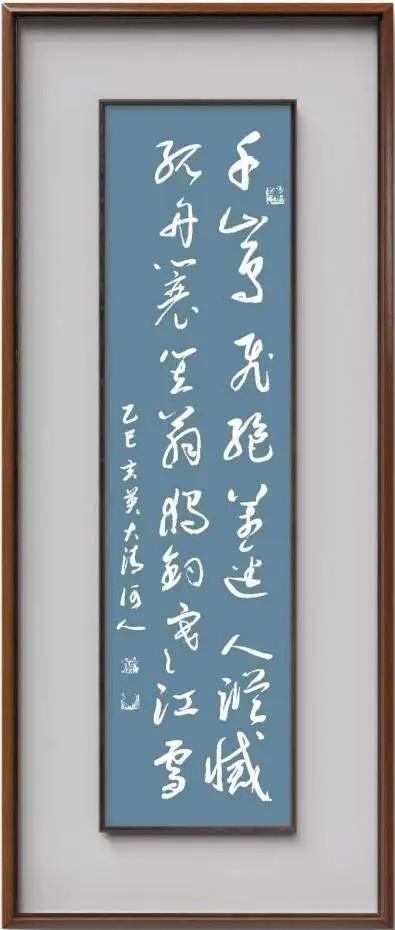 千山鳥飛絕萬逕人蹤滅
孤舟蓑笠翁獨釣寒江雪
乙巳玄英大清河人